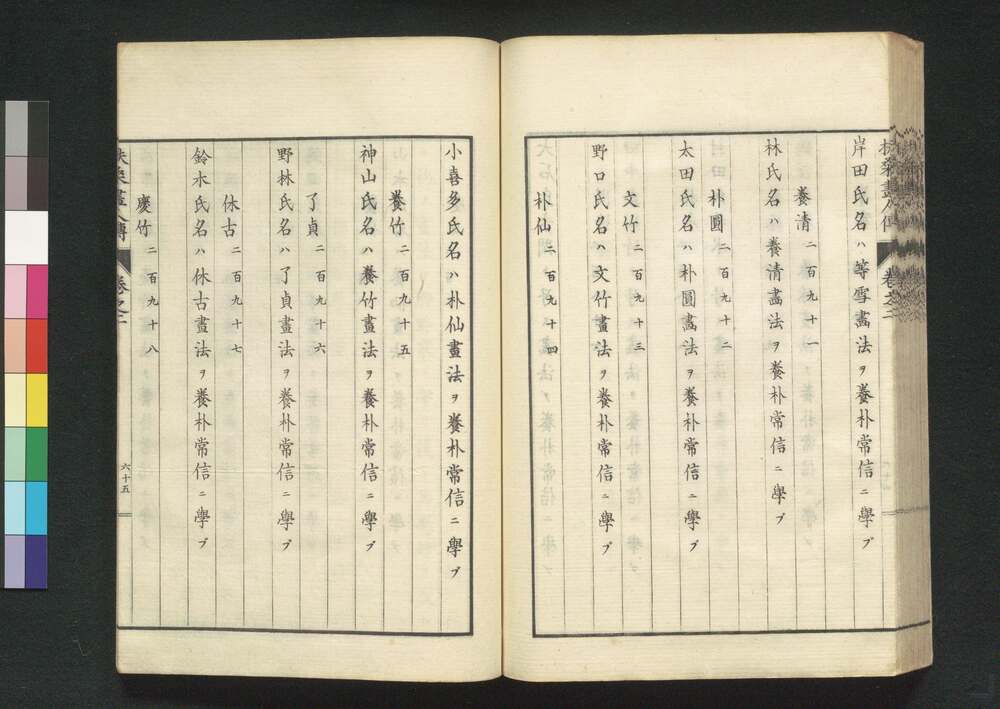 扶桑畫人傳
卷之二
岸田氏名ハ等雪畵法ヲ養朴常信ニ學ブ
養清 二百九十一
林氏名ハ養清畵法ヲ養朴常信ニ學ブ
朴圓 二百九十二
太田氏名ハ朴圓畵法ヲ養朴常信ニ學ブ
文竹 二百九十三
野口氏名ハ文竹畫法ヲ養朴常信ニ學ブ
朴仙 二百九十四
小喜多氏名ハ朴仙畫法ヲ養朴常信ニ學ブ
養竹 二百九十五
神山氏名ハ養竹畫法ヲ養朴常信ニ學ブ
了貞 二百九十六
野林氏名ハ了貞畫法ヲ養朴常信ニ學ブ
休古 二百九十七
鈴木氏名ハ休古畫法ヲ養朴常信ニ學ブ
慶竹 二百九十八
扶桑畫人傳
卷之二
六十五